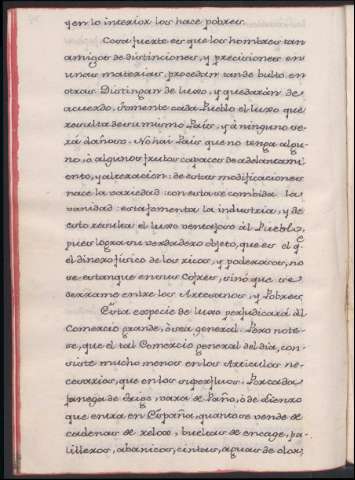 y en lo interior los hace pobres.
Cosa fuerte es que los hombres tan
amigos de distinciones, y precisiones en
unas materias, procedan tan de bulto en
otras. Distingan de luxo, y quedarán de
acuerdo. Fomente cada Pueblo el luxo que
resulta de su mismo País, y á ninguno se-
rá dañoso. No hai País que no tenga algu-
no, ó algunos frutos capaces de adelantami-
ento, y alteracion: de estas modificaciones
nace la variedad: con esta se combida la
vanidad: esta fomenta la industria, y de
esto resulta el luxo ventajoso al Pueblo,
pues logra su verdadero objeto, que es el q.e
el dinero fisico de los ricos, y poderosos, no
se estanque en sus Cofres, sinó que se
derrame entre los Artesanos, y Pobres.
Esta especie de luxo perjudicará al
Comercio grande, ó sea general. Pero note-
se, que el tal Comercio general del dia, con-
siste mucho menos en los Articulos ne-
cesarios, que en los superfluos. Por cada
fanega de trigo, vara de Paño, ó de lienzo
que entra en España, quanto se vende de
cadenas de relox, bueltas de encage, pa-
lilleros, abanicos, cintas, aguas de olor,